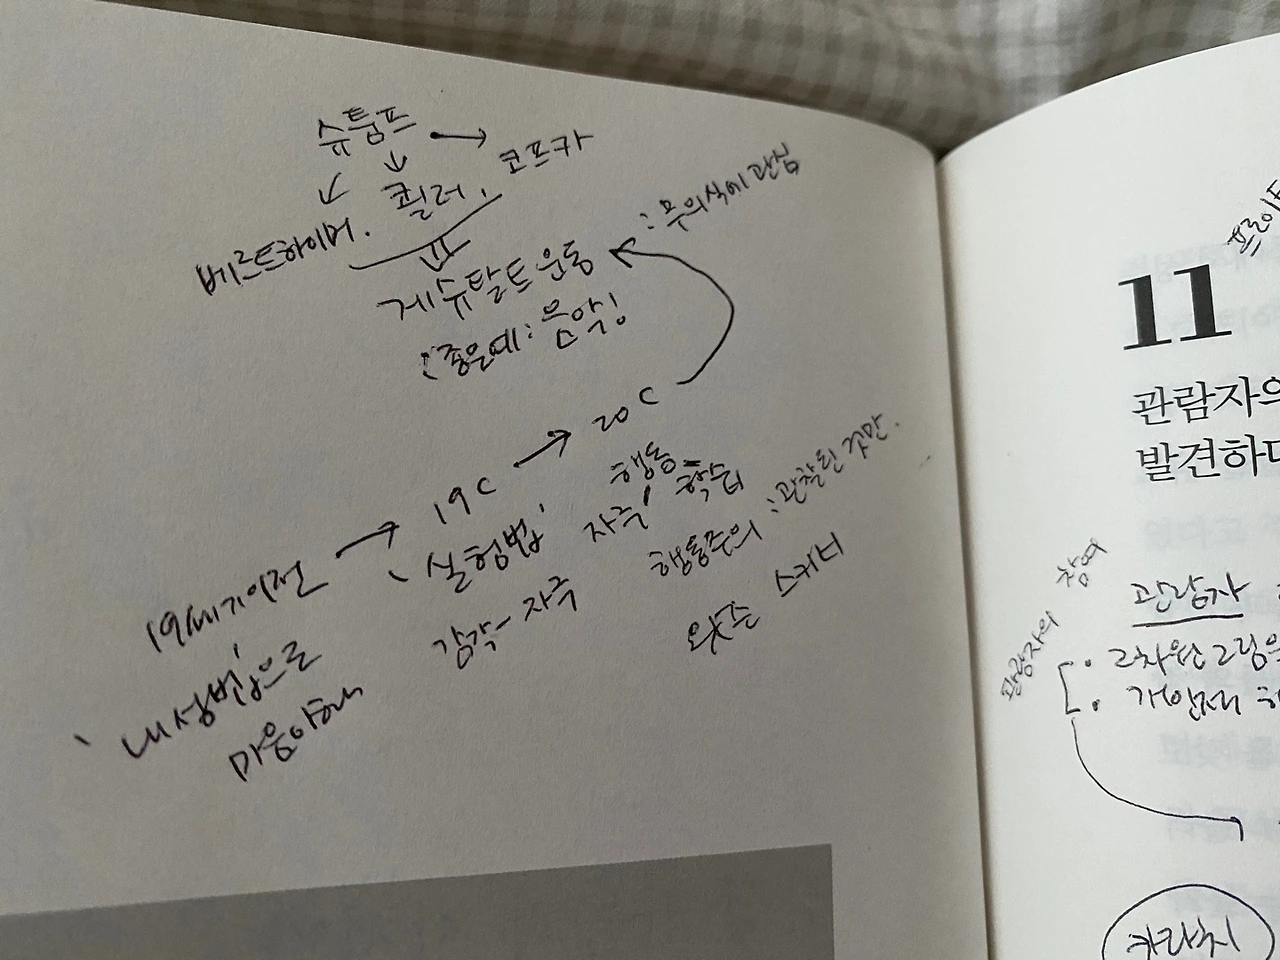 슈툼프 → 코프카
베르트하이머. 쾰러,
게슈탈트 운동 : 무의식에 관심
: 좋은예 : 음악!
19세기이전 → 19C → 20C
'내성법'으로
마음이해
'실험법'
감각-자극
행동=
자극, 학습
행동주의 : 관찰된 것만.
왓슨 스키너
프로이트
11
관람자의
발견하다
관람자의 참여
관람자
· 2차원 그림을
· 개인적
카리치